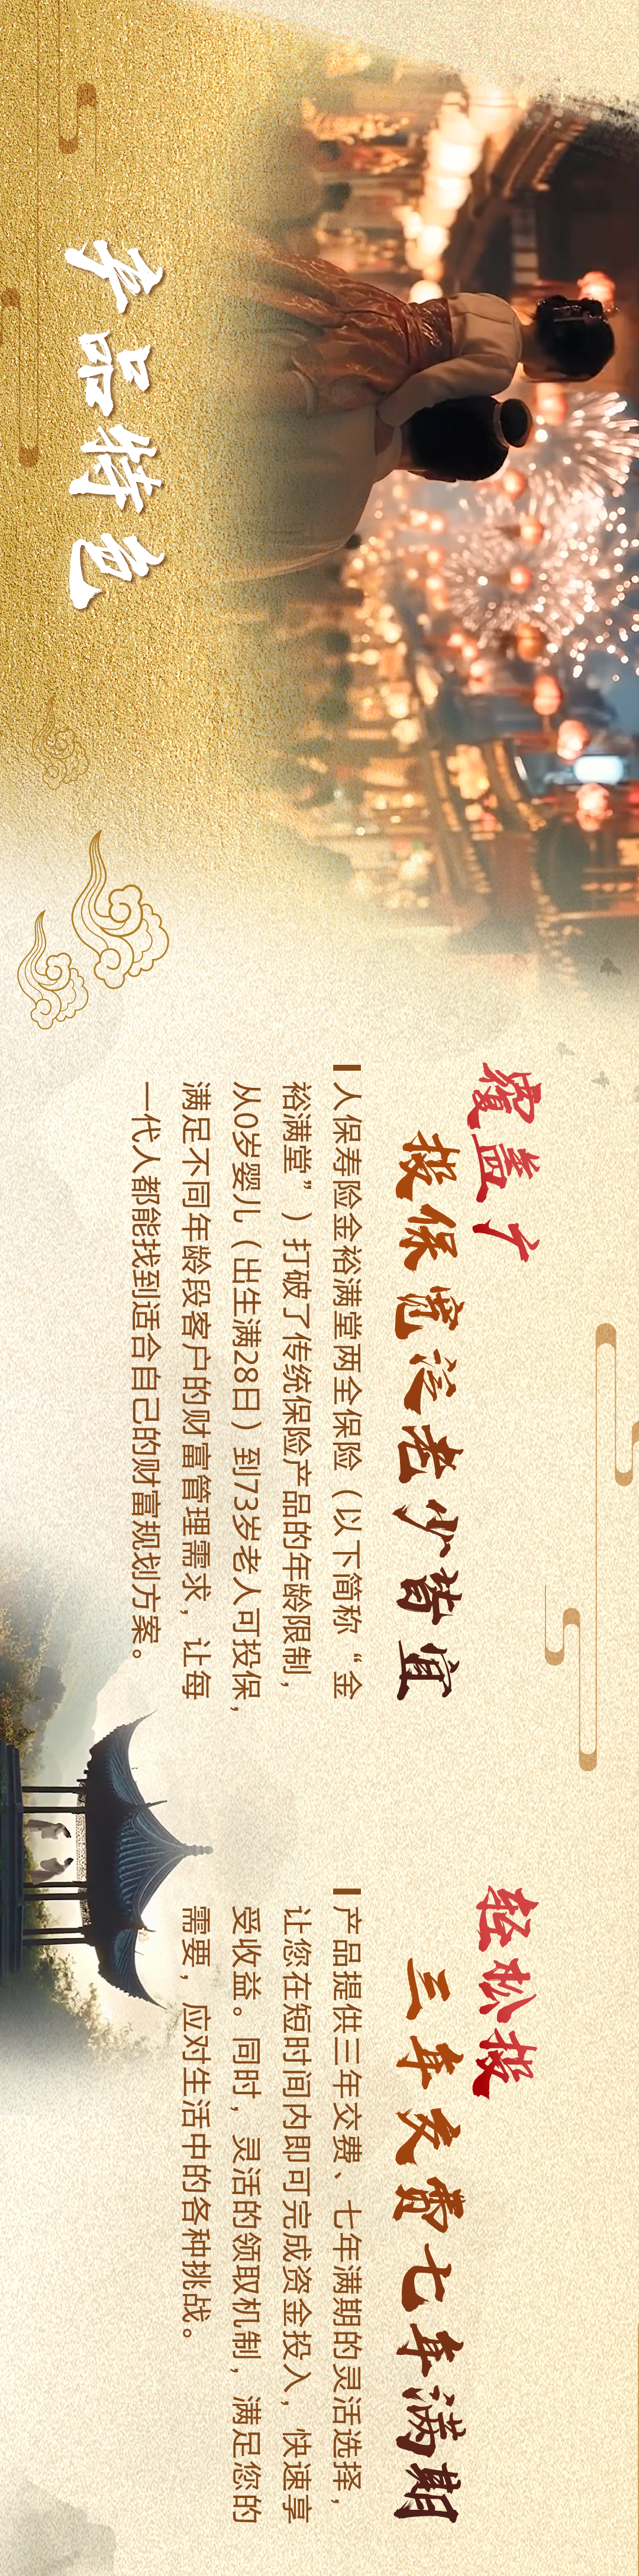 产品特色
覆盖广
投保宽泛老少皆宜
人保寿险金裕满堂两全保险（以下简称“金
裕满堂”）打破了传统保险产品的年龄限制，
从0岁婴儿（出生满28日）到73岁老人可投保，
满足不同年龄段客户的财富管理需求，让每
一代人都能找到适合自己的财富规划方案。
轻松投
三年交费七年满期
产品提供三年交费、七年满期的灵活选择，
让您在短时间内即可完成资金投入，快速享
受收益。同时，灵活的领取机制，满足您的
需要，应对生活中的各种挑战。